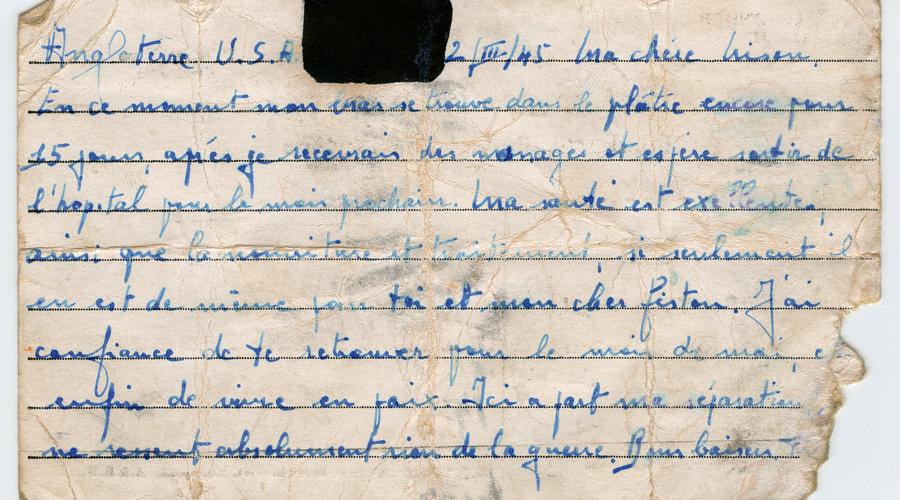 Angleterre U.S.A. 2/III/45 Ma chère
En ce moment mon bras se trouve dans le plâtre encore pour
15 jours, après je recevrais des massages et espère sortir de
l'hopital pour le mois prochain. Ma santé est exellente,
ainsi que la nourriture et traitement, si seulement il
en est de même pour toi et mon cher fiston. J'ai
confiance de te retrouver pour le mois de mai, e
enfin de vivre en paix. Ici a part ma séparation
ne ressent absolument rien de la guerre. Bons baisers